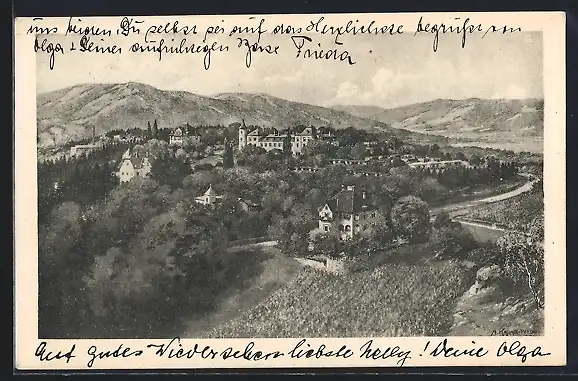 uns beiden. Du selbst sei auf das Herzlichste begrüßt von
Olga & Deiner aufrichtigen Base Frieda
Auf gutes Wiedersehen liebste Nelly! Deine Olga